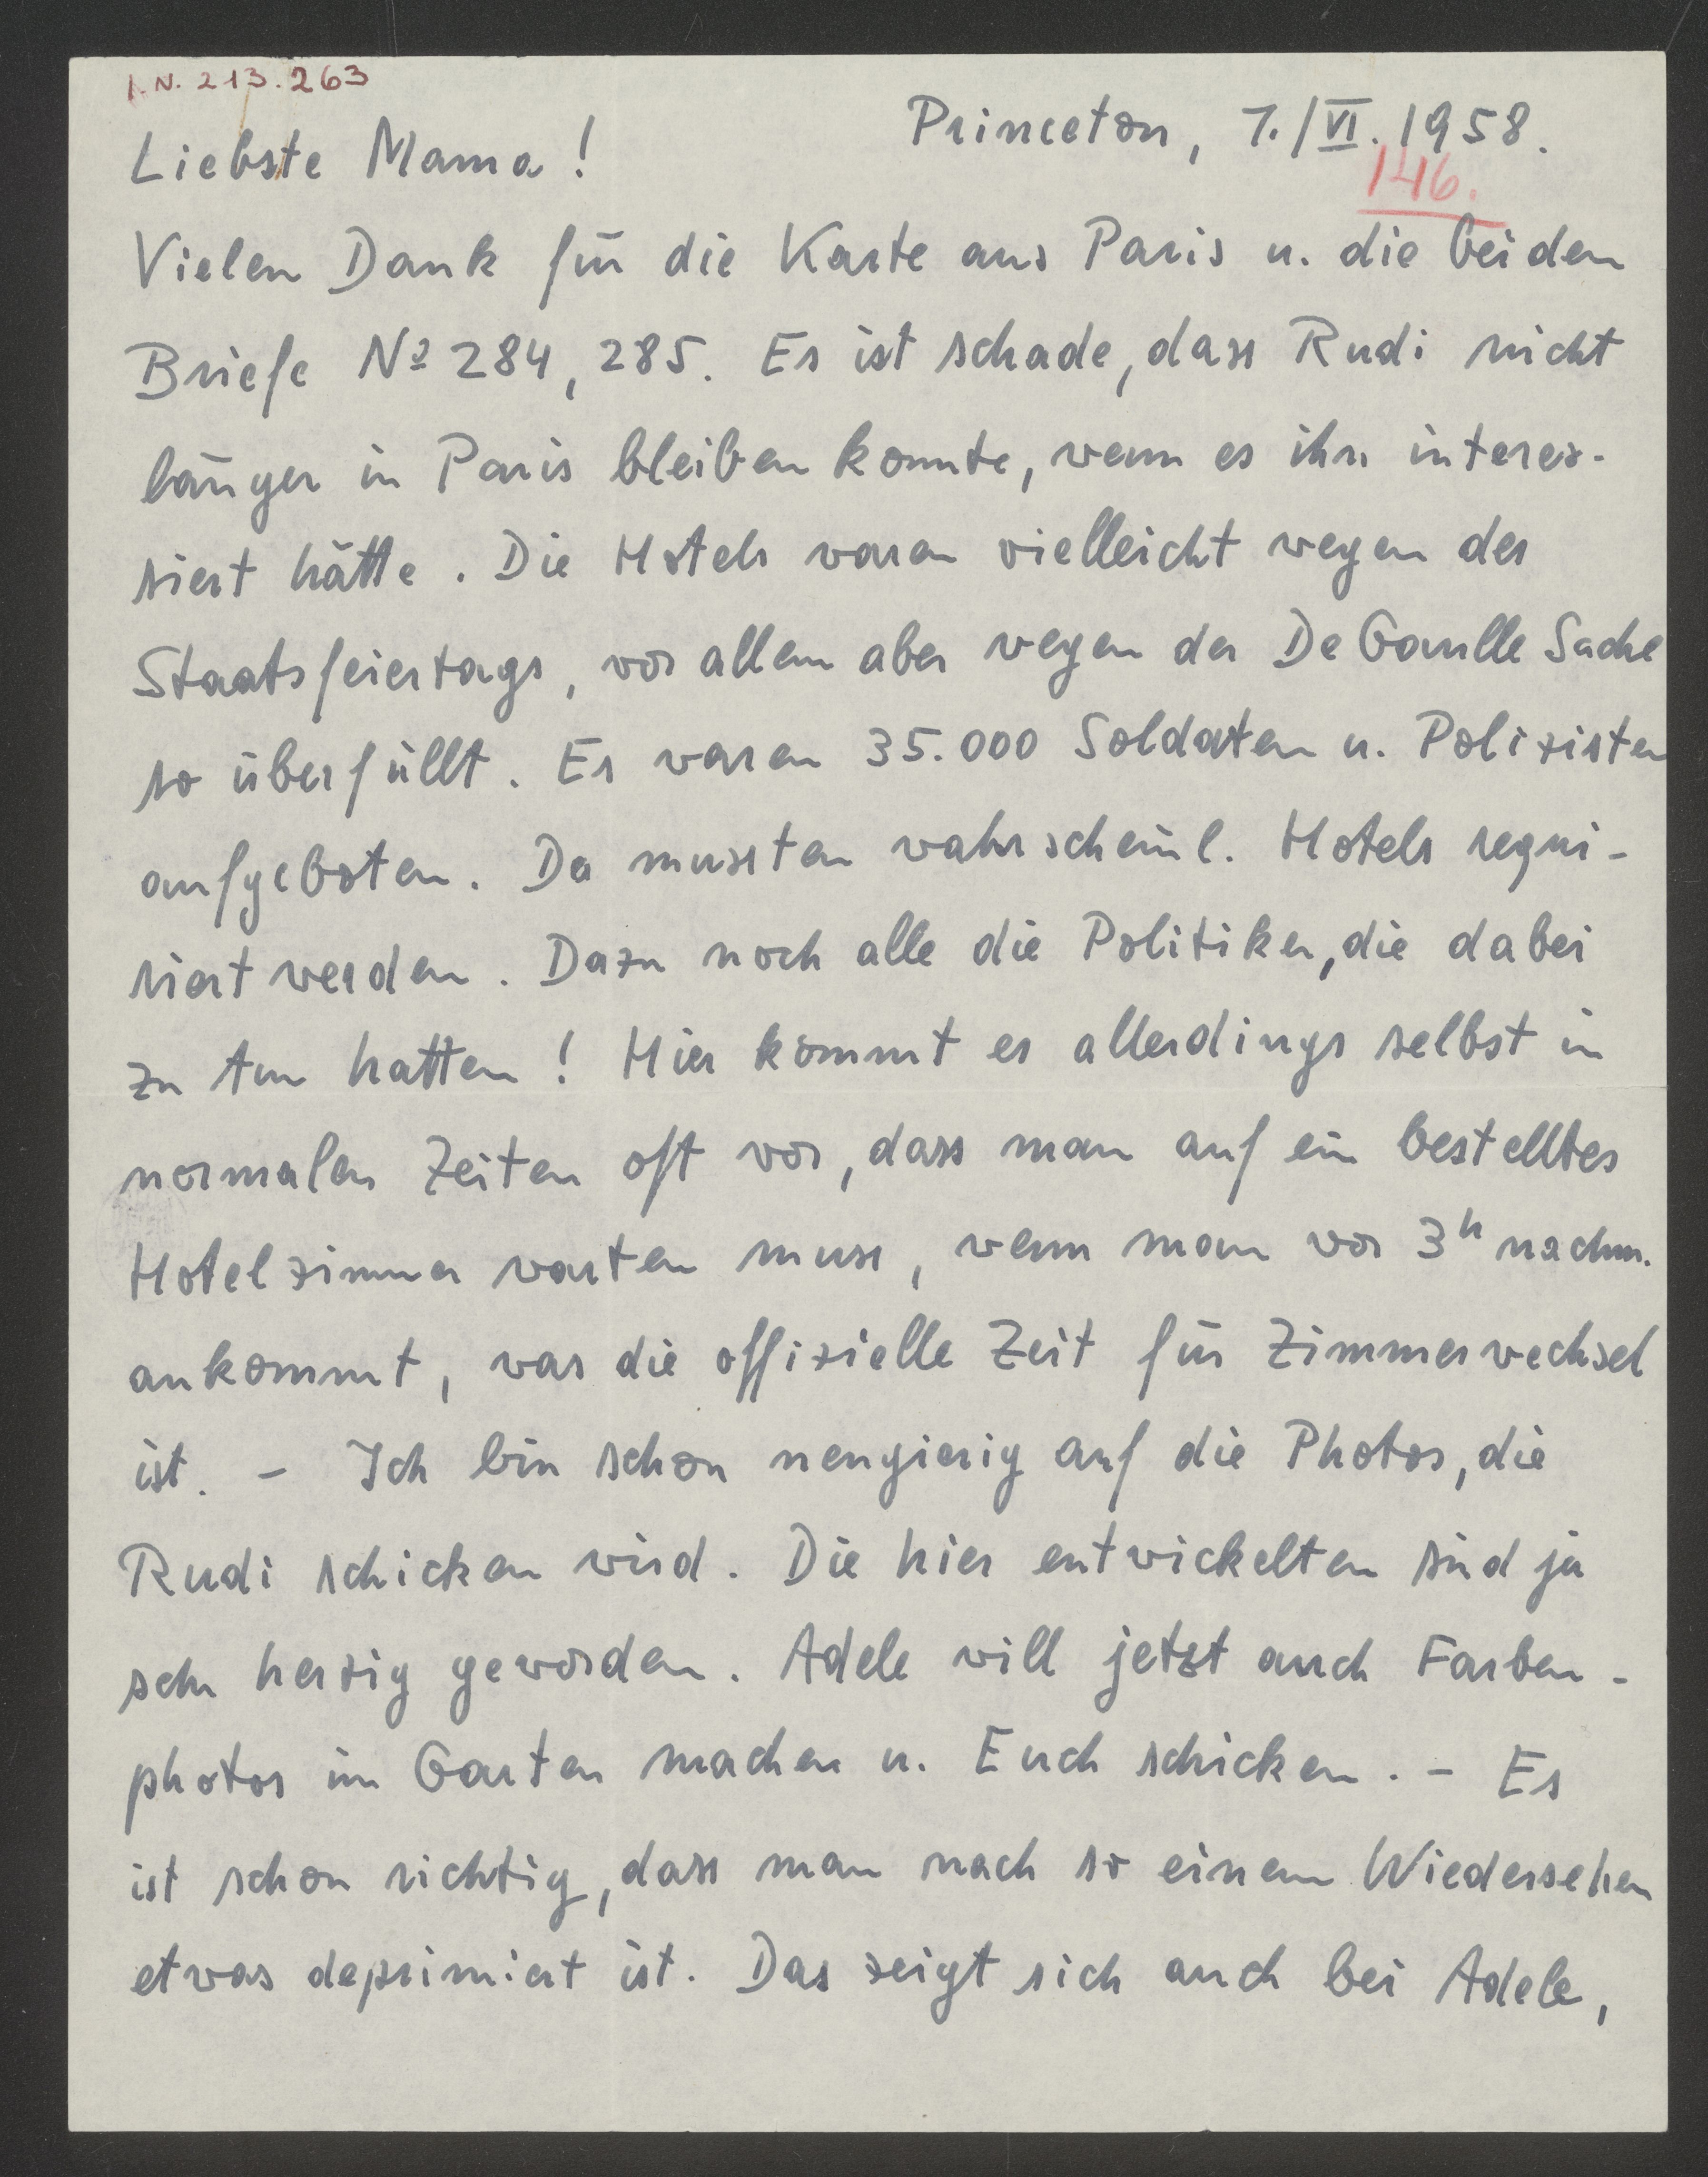 I.N. 213.263
Princeton, 7./VI.1958.
146.
Liebste Mama!
Vielen Dank für die Karte aus Paris u. die beiden
Briefe No 284, 285. Es ist schade, dass Rudi nicht
länger in Paris bleiben konnte, wenn es ihn interes-
siert hätte. Die Hotels waren vielleicht wegen des
Staatsfeiertags, vor allem aber wegen der De Gaulle Sache
so überfüllt. Es waren 35.000 Soldaten u. Polizisten
aufgeboten. Da mussten wahrscheinl. Hotels requi-
riert werden. Dazu noch alle die Politiker, die dabei
zu tun hatten! Hier kommt es allerdings selbst in
normalen Zeiten oft vor, dass man auf ein bestelltes
Hotelzimmer warten muss, wenn man vor 3h nachm.
ankommt, was die offizielle Zeit für Zimmerwechsel
ist. – Ich bin schon neugierig auf die Photos, die
Rudi schicken wird. Die hier entwickelten sind ja
sehr herzig geworden. Adele will jetzt auch Farben-
photos im Garten machen u. Euch schicken. – Es
ist schon richtig, dass man nach so einem Wiedersehen
etwas deprimiert ist. Das zeigt sich auch bei Adele,